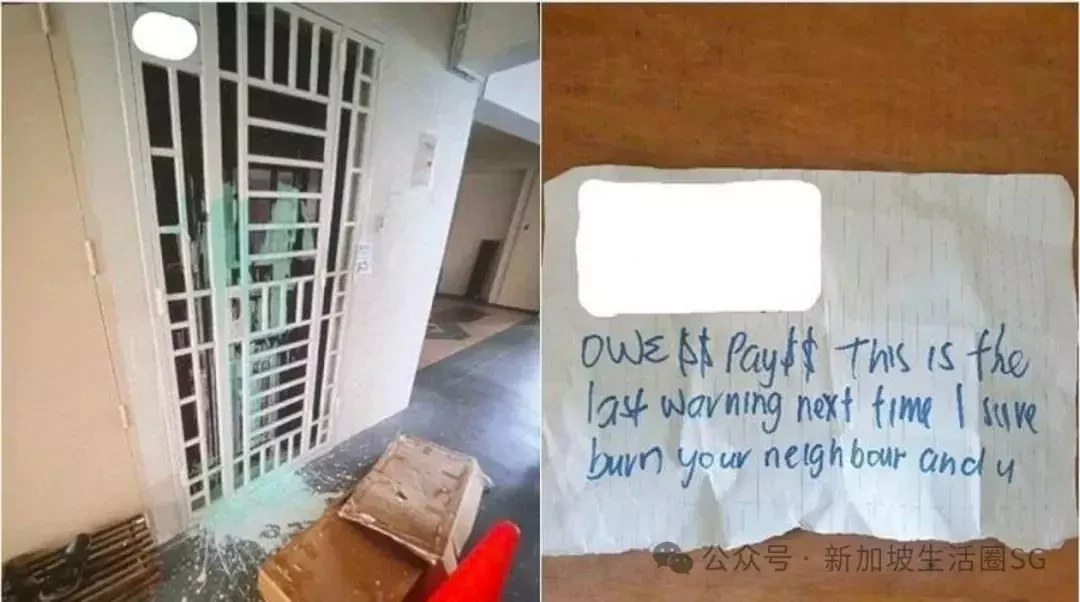 OWE $$ Pay$$ This is the
last warning next time I sure
burn your neighbour and u
公众号 · 新加坡生活圈SG